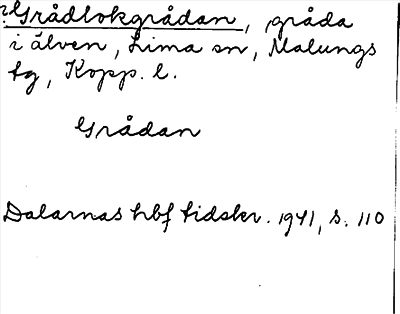 ?Grådlokgrådan, gråda
i älven, Lima sn, Malungs
tg, Kopp. l.
Grådan
Dalarnas hbf tidskr. 1941, s. 110